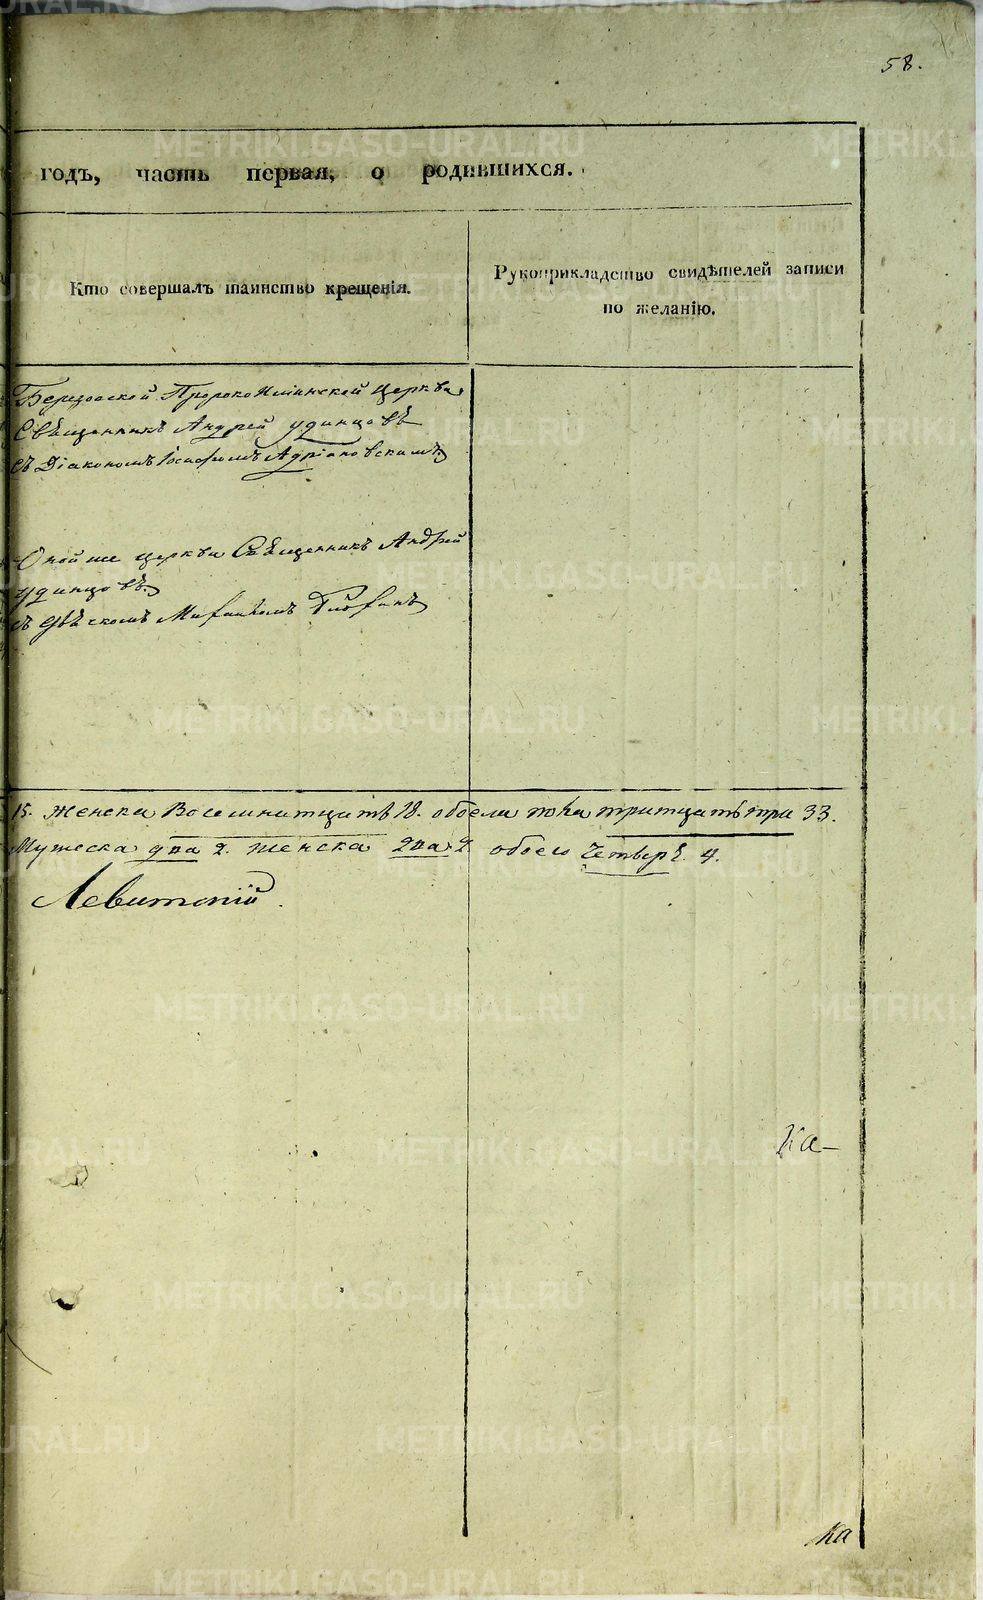 58.
годъ, часть первая, о родившихся.
Кто совершалъ таинство крещенія.
Рукоприкладство свидѣтелей записи
по желанію.
Березовской Пророкоилiинской Церкви
Священникъ Андрей Удинцовъ
съ Діакономъ Адріановскимъ
Оной же церкви Священникъ Андрей
Удинцовъ
съ
15. Женска Восемнатцать 18. обоега пола тритцать три 33.
Мужеска два 2. Женска два 2. обоего четверо 4.
Левитскій.
Ка
METRIKI.GASO-URAL.RU